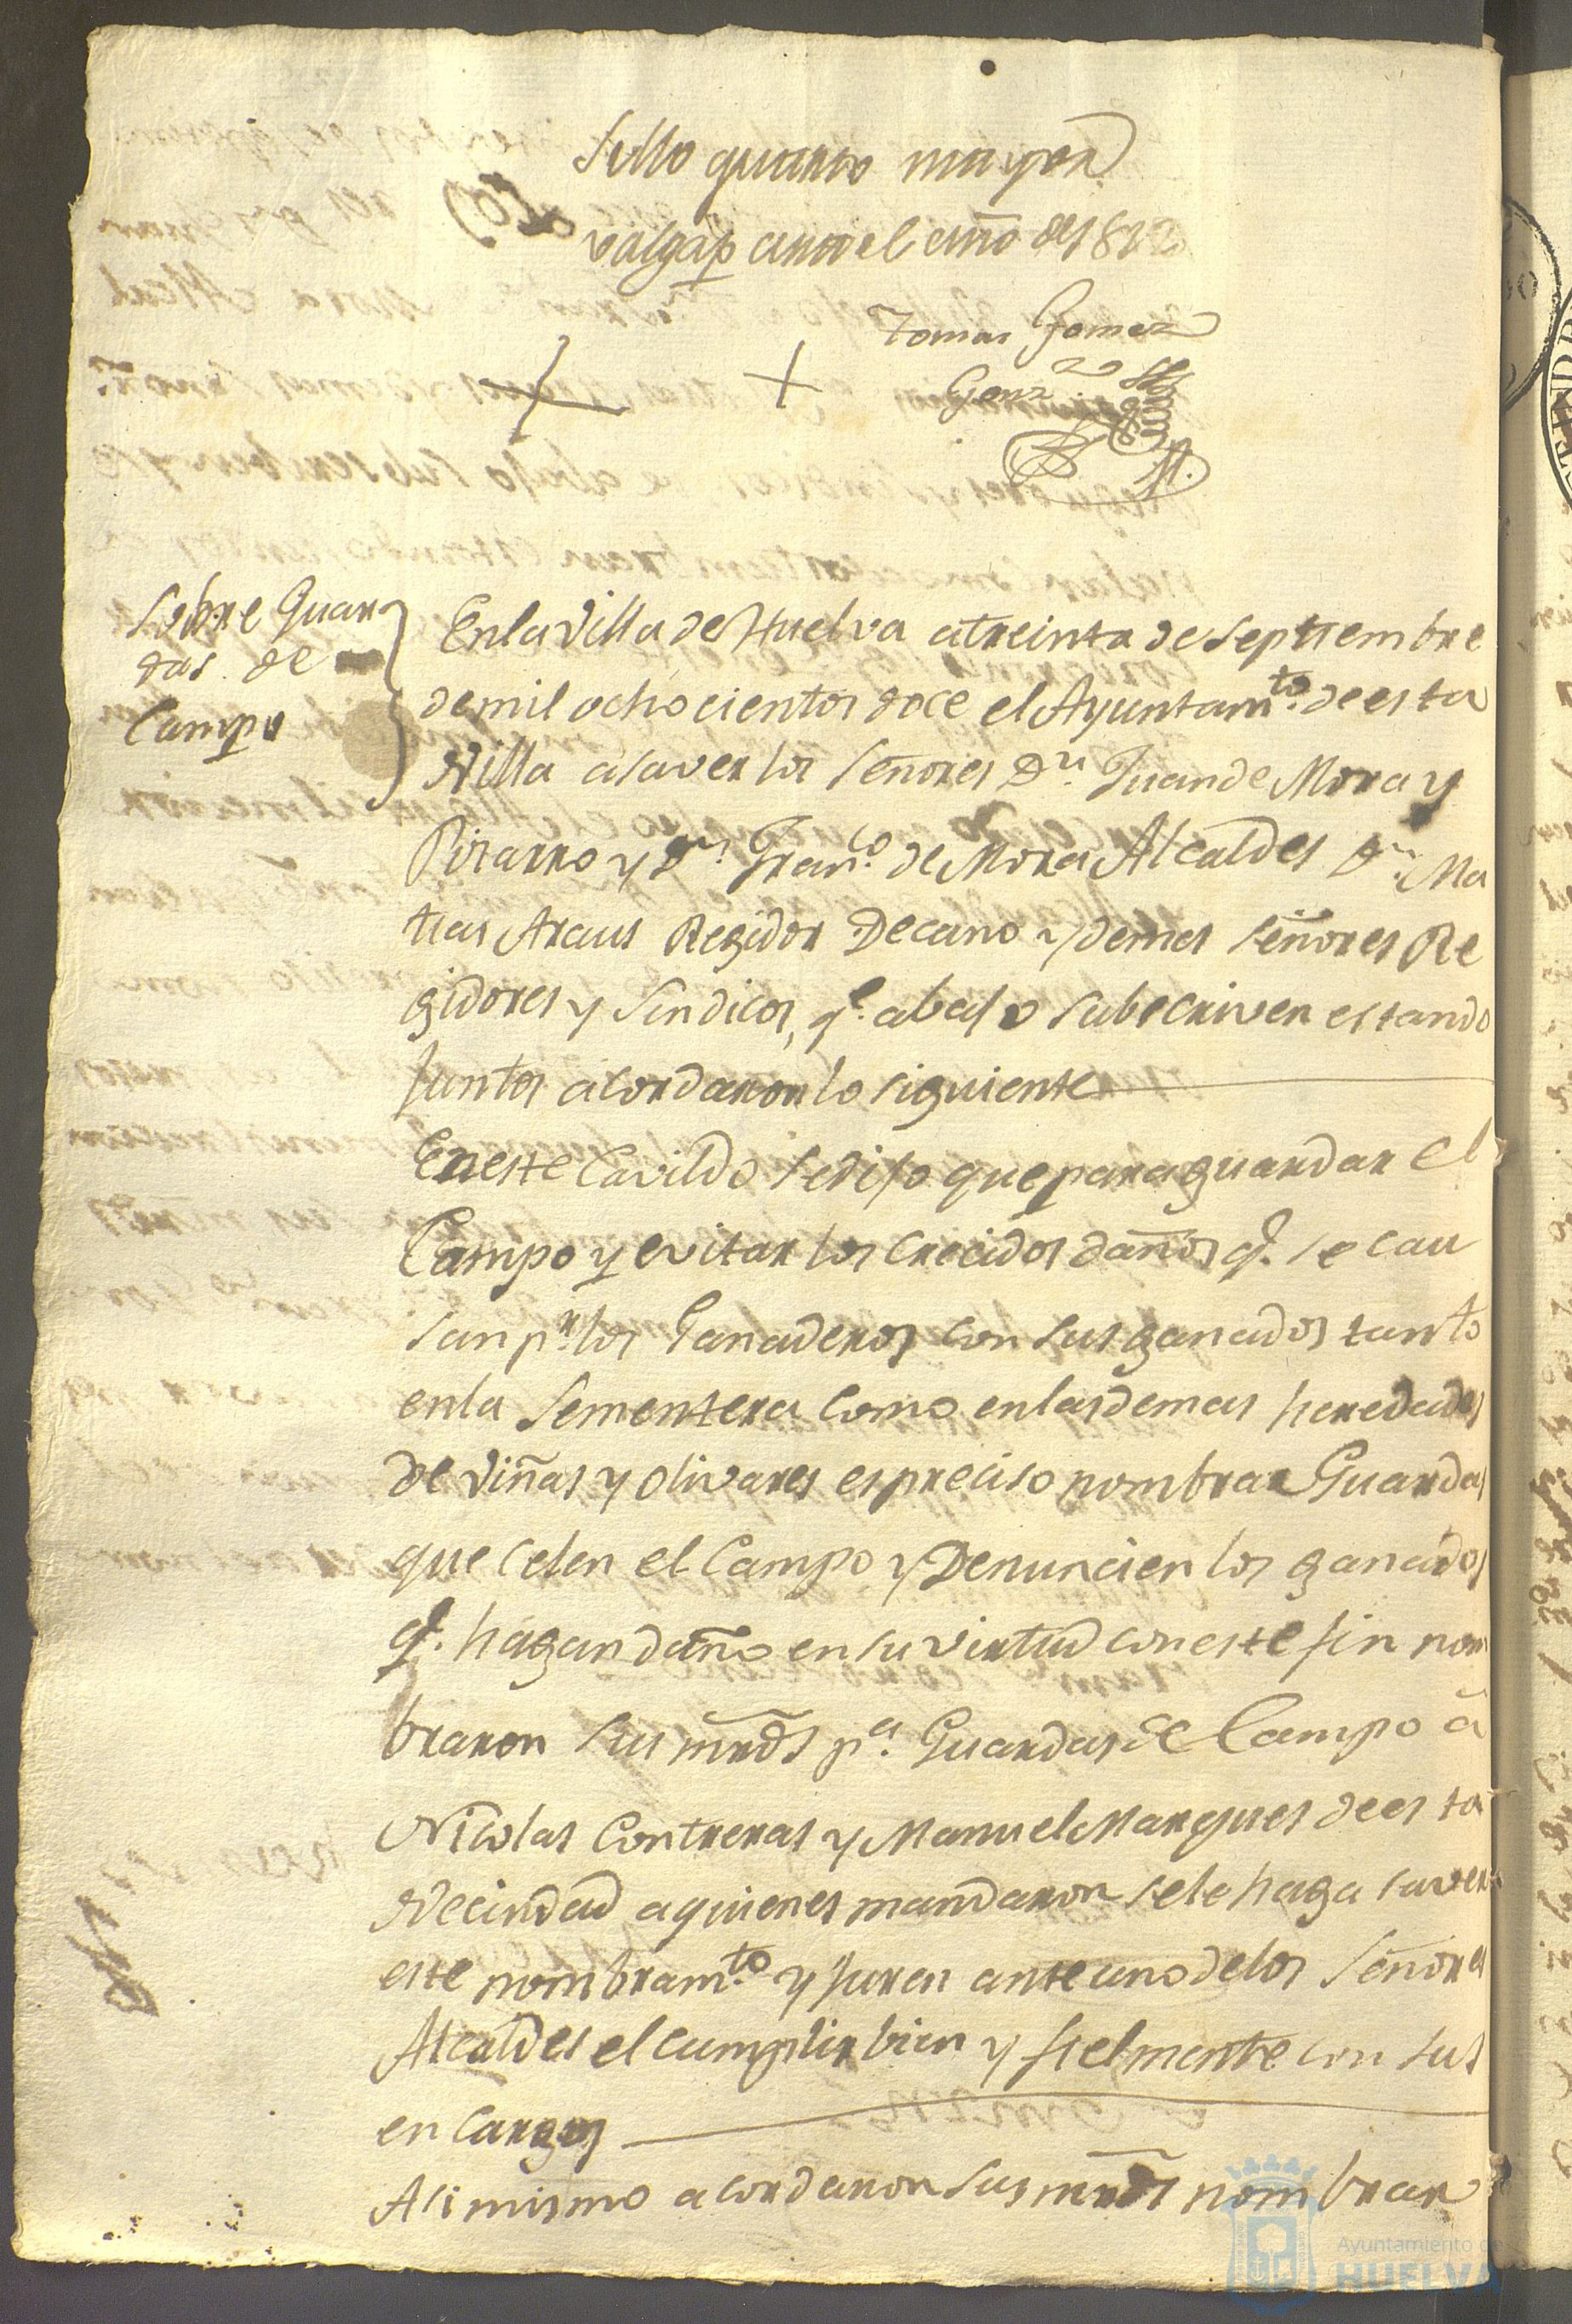 Sello quarto mayor
valga para el año de 1812
Tomas Gomez
Sobre Guar
das de
Campo
En la Villa de Huelva a treinta de Septiembre
de mil ocho cientos doce el Ayuntam.to de esta
Villa a saver los Señores D.n Juan de Mora y
Pizarro y D.n Fran.co de Mora Alcaldes D.n Ma
tias Araus Regidor Decano y demas Señores Re
gidores y Sindicos, q.e abajo subscriven estando
juntos acordaron lo siguiente
En este Cavildo se dijo que para guardar el
Campo y evitar los crecidos daños q.e se cau
san p.r los Ganaderos con sus ganados tanto
en la Sementera como en las demas heredades
de viñas y olivares es preciso nombrar Guardas
que celen el Campo y Denuncien los ganados
q.e hagan daño en su virtud con este fin nom
braron sus mrds p.a Guardas de Campo â
Nicolas Contreras y Manuel Marques de esta
Vecindad a quienes mandaron se le haga saver
este nombram.to y juren ante uno de los Señores
Alcaldes el cumplir bien y fielmente con sus
encargos
Asi mismo acordaron sus mrds nombrar
Ayuntamiento de
HUELVA